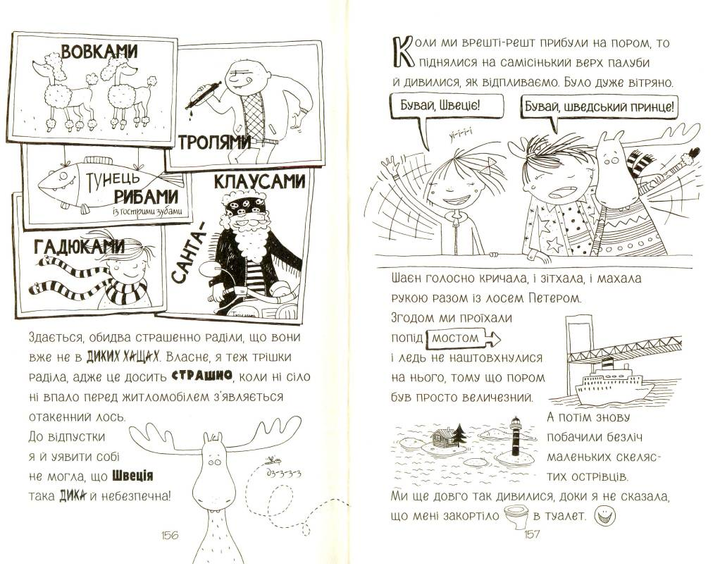 ВОВКАМИ
ТРОЛЯМИ
ТУНЕЦЬ
РИБАМИ
із гострими зубами
САНТА-
КЛАУСАМИ
ГАДЮКАМИ
Здається, обидва страшенно раділи, що вони
вже не в ДИКИХ ХАЩАХ. Власне, я теж трішки
раділа, адже це досить СТРАШНО, коли ні сіло
ні впало перед житломобілем з'являється
отакенний лось.
До відпустки
я й уявити собі
не могла, що Швеція
така ДИКА й небезпечна!
дз-з-з-з
156
Коли ми врешті-решт прибули на пором, то
піднялися на самісінький верх палуби
й дивилися, як відпливаємо. Було дуже вітряно.
Бувай, Швеціє!
Бувай, шведський принце!
Шаєн голосно кричала, і зітхала, і махала
рукою разом із лосем Петером.
Згодом ми проїхали
попід мостом
і ледь не наштовхнулися
на нього, тому що пором
був просто величезний.
А потім знову
побачили безліч
маленьких скеляс-
тих острівців.
Ми ще довго так дивилися, доки я не сказала,
що мені закортіло в туалет.
157